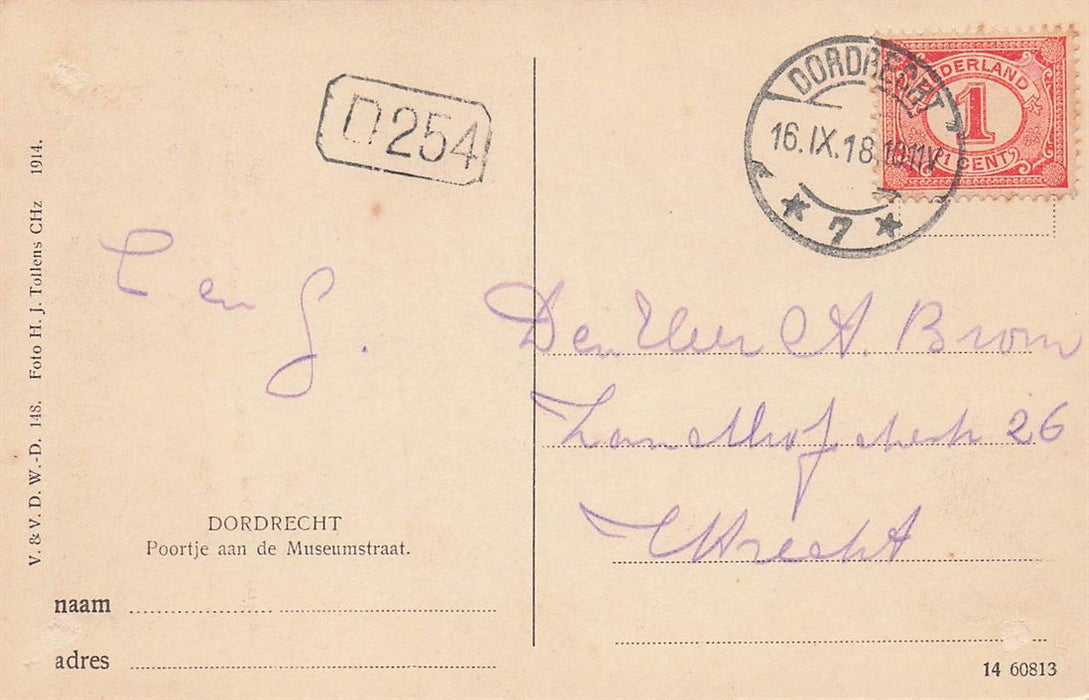 V. & V. D. W.-D. 148. Foto H. J. Tollens CHz 1914.
D 254
DORDRECHT
16.IX.18.
7
NEDERLAND
1
1 CENT
en G.
Den Heer A. Brom
26
Utrecht
DORDRECHT
Poortje aan de Museumstraat.
naam
adres
14 60813